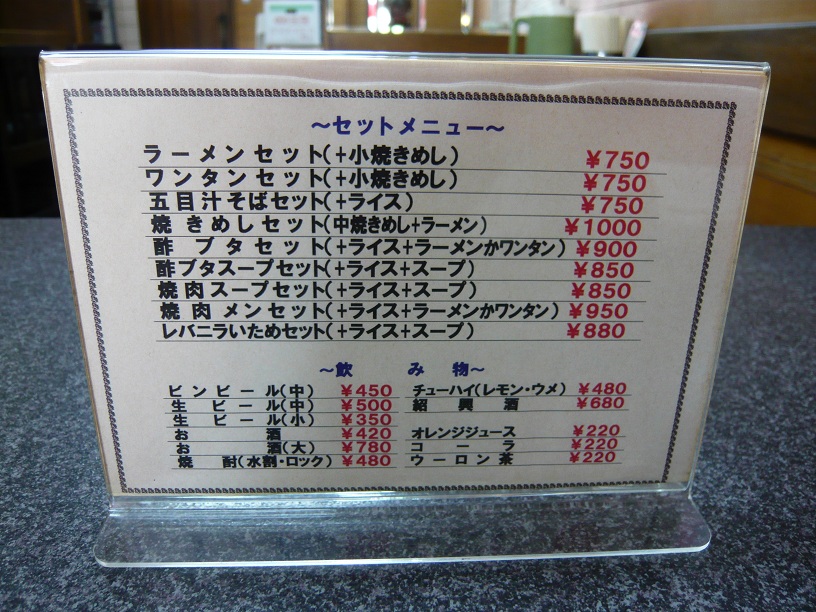 ～セットメニュー～
ラーメンセット(+小焼きめし) ￥750
ワンタンセット(+小焼きめし) ￥750
五目汁そばセット(+ライス) ￥750
焼きめしセット(中焼きめし+ラーメン) ￥1000
酢ブタセット(+ライス+ラーメンかワンタン) ￥900
酢ブタスープセット(+ライス+スープ) ￥850
焼肉スープセット(+ライス+スープ) ￥850
焼肉メンセット(+ライス+ラーメンかワンタン) ￥950
レバニラいためセット(+ライス+スープ) ￥880
～飲み物～
ビンビール(中) ￥450
生ビール(中) ￥500
生ビール(小) ￥350
お酒 ￥420
お酒(大) ￥780
焼酎(水割・ロック) ￥480
チューハイ(レモン・ウメ) ￥480
紹興酒 ￥680
オレンジジュース ￥220
コーラ ￥220
ウーロン茶 ￥220